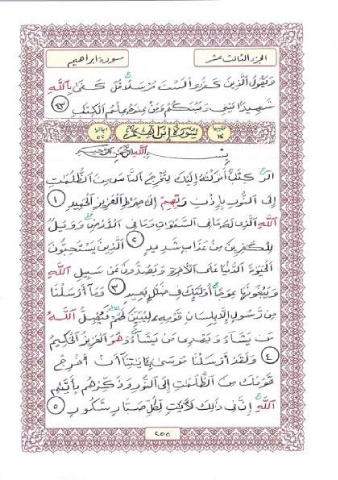 الجزء الثالث عشر سورة إبراهيم
ويقول الذين كفروا لست مرسلا قل كفى بالله
شهيدا بيني وبينكم ومن عنده علم الكتاب ٤٣
سورة إبراهيم
بسم الله الرحمن الرحيم
الر كتاب أنزلناه إليك لتخرج الناس من الظلمات
إلى النور بإذن ربهم إلى صراط العزيز الحميد ١
الله الذي له ما في السموات وما في الأرض وويل
للكافرين من عذاب شديد ٢ الذين يستحبون
الحيوة الدنيا على الآخرة ويصدون عن سبيل الله
ويبغونها عوجا أولئك في ضلال بعيد ٣ وما أرسلنا
من رسول إلا بلسان قومه ليبين لهم فيضل الله
من يشاء ويهدي من يشاء وهو العزيز الحكيم
٤ ولقد أرسلنا موسى بآياتنا أن أخرج
قومك من الظلمات إلى النور وذكرهم بأيام
الله إن في ذلك لآيات لكل صبار شكور ٥
٢٥٥